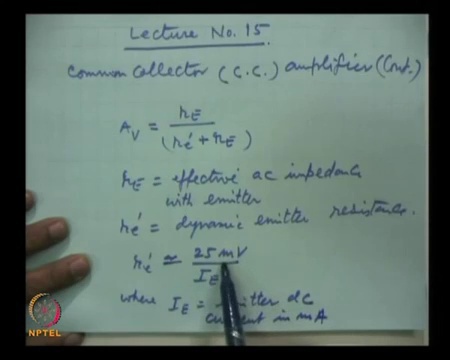 Lecture No. 15.
Common Collector (C.C.) amplifier (Cont.)
A_V = r_E / (r_e' + r_E)
r_E = effective ac impedance
with emitter
r_e' = dynamic emitter resistance.
r_e' ≃ 25 mV / I_E
where I_E = emitter dc
current in mA
NPTEL